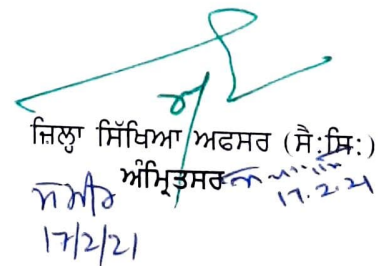 ਜ਼ਿਲ੍ਹਾ ਸਿੱਖਿਆ ਅਫਸਰ (ਸੈ:ਸਿ:)
ਅੰਮ੍ਰਿਤਸਰ
17.2.21
17/2/21